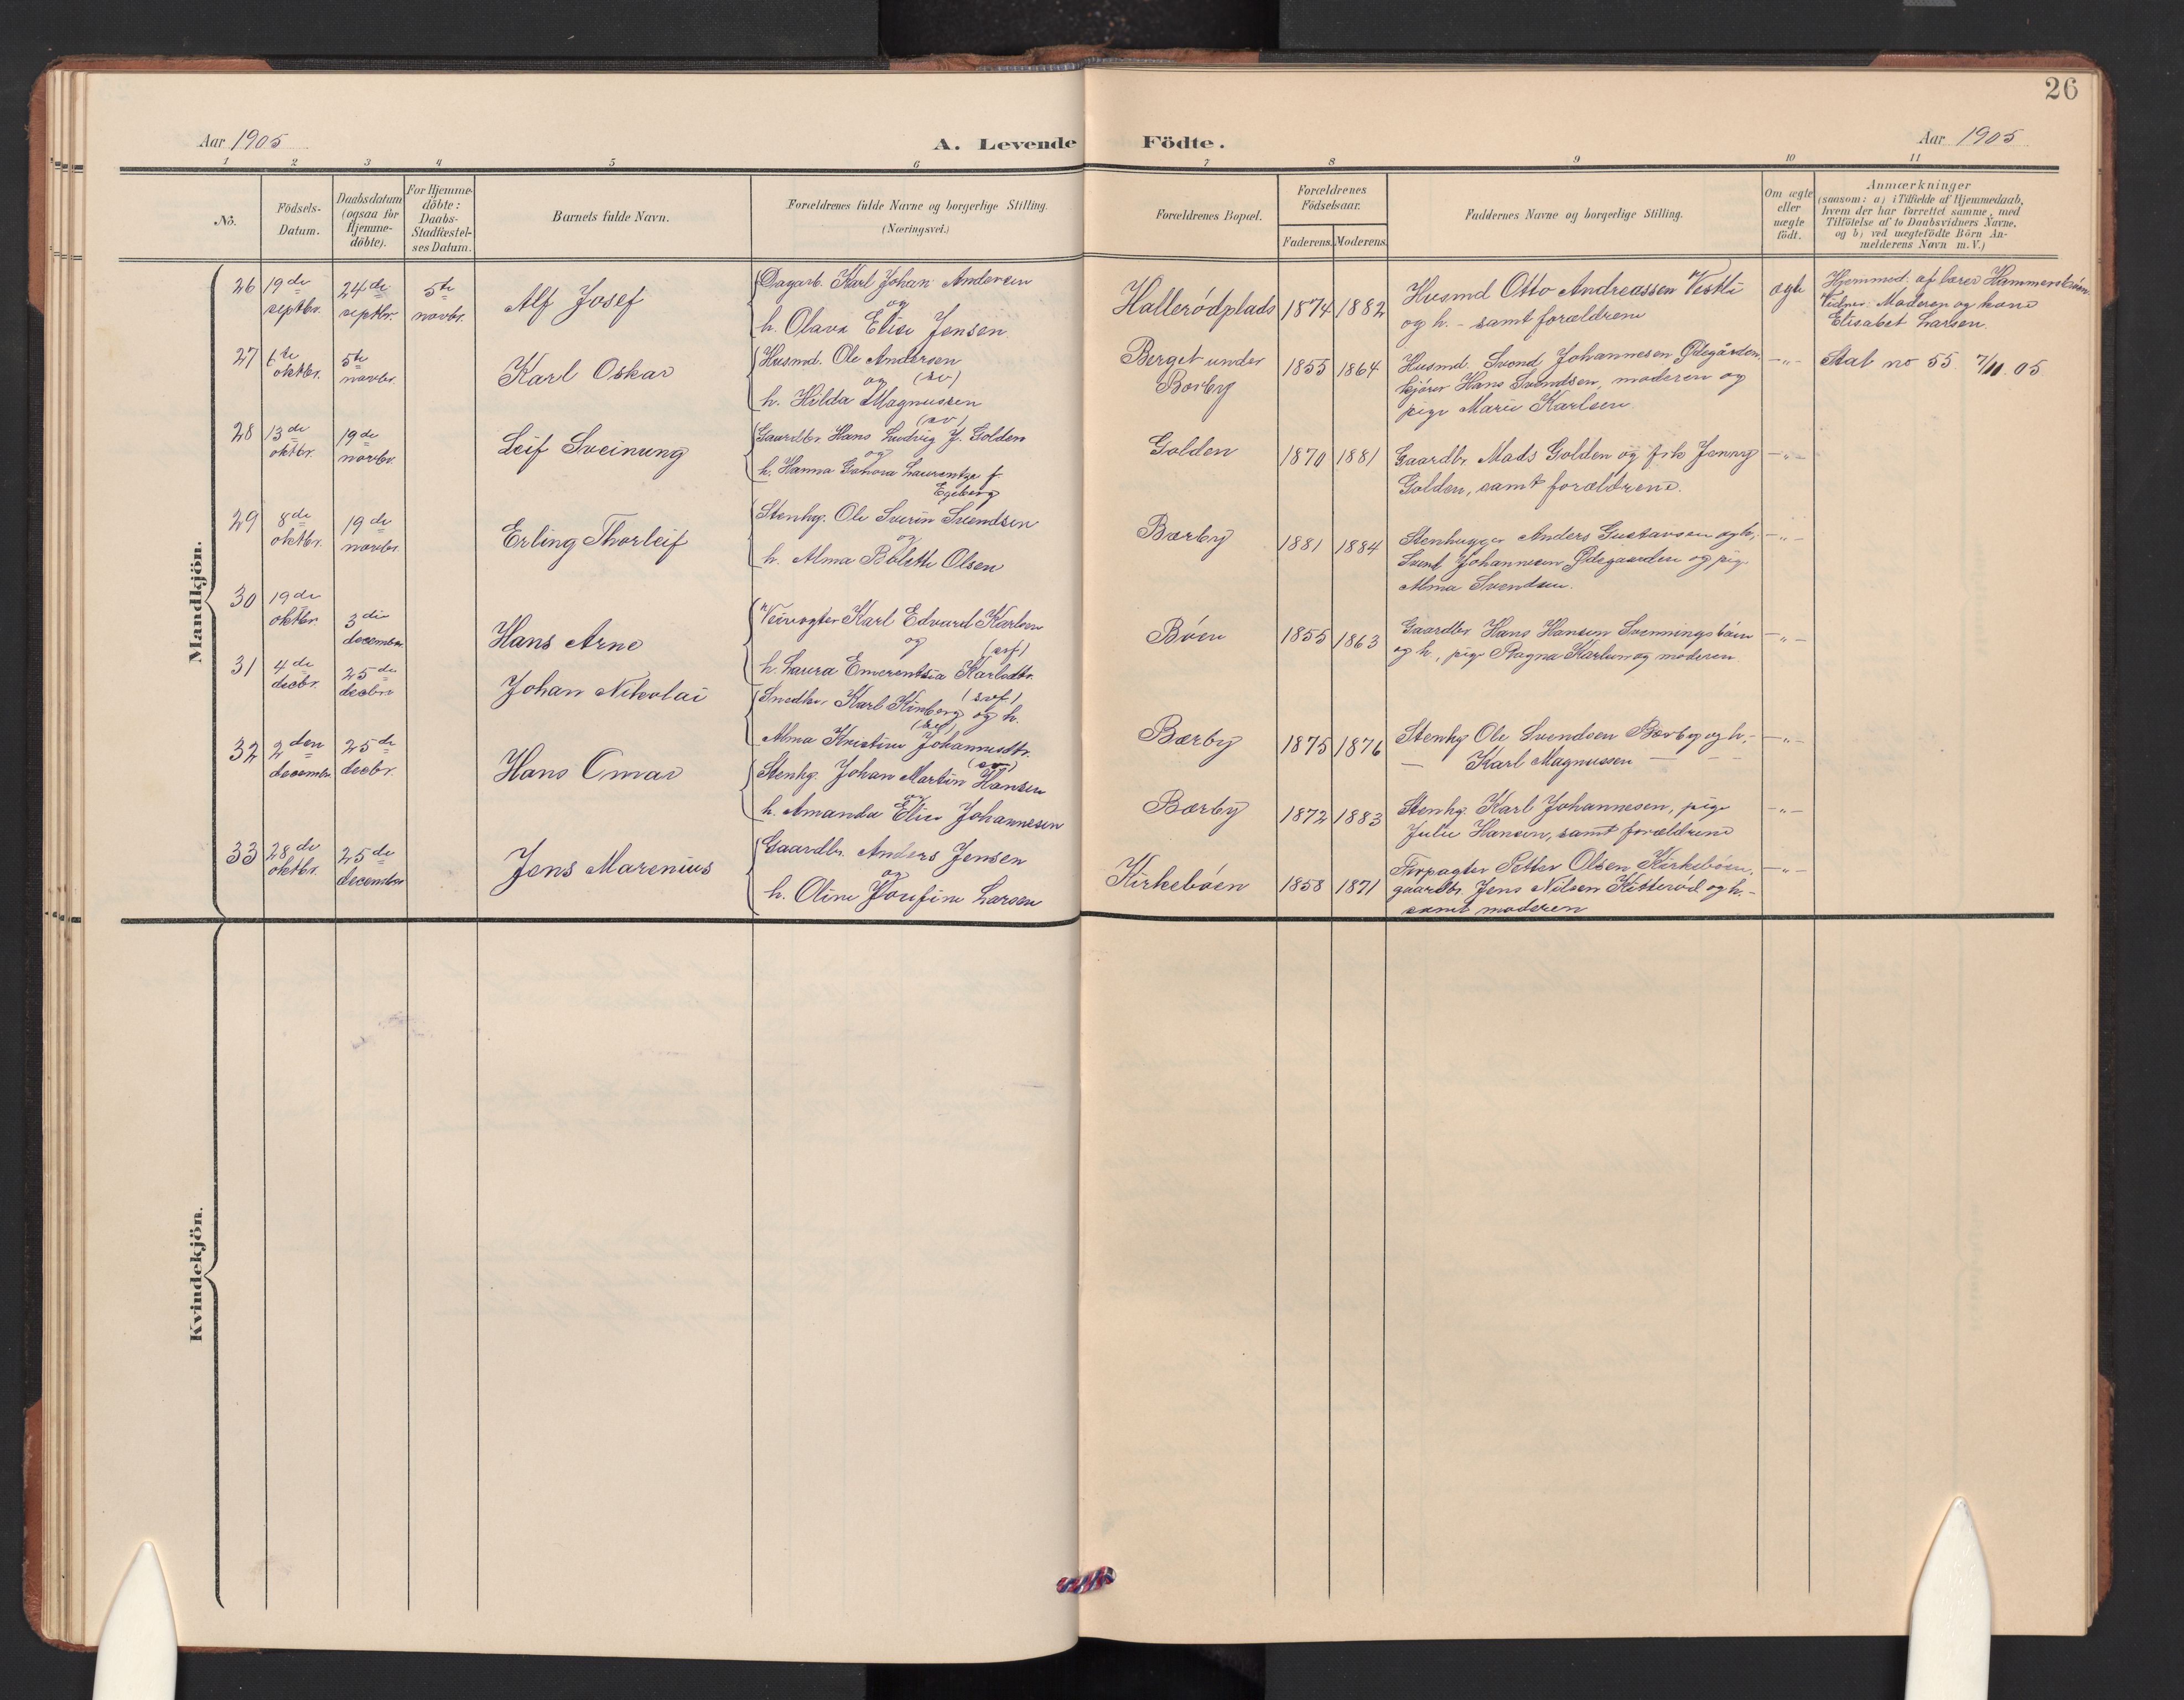 26
Aar 1905
A. Levende Födte.
Aar 1905
1 2 3 4 5 6 7 8 9 10 11
Nö.
Födsels-Datum.
Daabsdatum (ogsaa for Hjemme-döbte).
For Hjemme-döbte: Daabs-Stadfæstel-ses Datum.
Barnets fulde Navn.
Forældrenes fulde Navne og borgerlige Stilling.
(Næringsvei.)
Forældrenes Bopæl.
Forældrenes Födselsaar.
Faderens. Moderens.
Faddernes Navne og borgerlige Stilling.
Om ægte eller uægte födt.
Anmærkninger
(saasom: a) i Tilfælde af Hjemmedaab,
hvem der har forrettet samme, med
Tilföielse af to Daabsvidners Navne,
og b) ved uægtefödte Börn An-
melderens Navn m. V.)
Mandkjön.
26 19de septbr. 24de septbr. 5te novbr. Alf Josef
Dagarb. Karl Johan Andersen
og
h. Olava Elise Jensen
Hallerødplads 1874 1882
Husmd Otto Andreassen Vestli
og h. - samt forældrene
ægte
Hjemmed. af lærer Hammersbøen
Vidner: Moderen og kone
Elisabet Larsen.
27 6te oktbr. 5te novbr. Karl Oskar
Husmd. Ole Andersen
og (sv)
h. Hilda Magnussen
(sv)
Berget under
Bærby
1855 1864
Husmd. Svend Johannesen Ødegården,
kjører Hans Svendsen, moderen og
pige Marie Karlsen
-"-
Stat no 55 7/11.05
28 13de oktbr. 19de novbr. Leif Sveinung
Gaardbr. Hans Ludvig J. Golden
og
h. Hanna Laurentze f.
Egeberg
Golden 1870 1881
Gaardbr. Mads Golden og frk Jenny
Golden, samt forældrene.
-"-
29 8de oktbr. 19de novbr. Erling Thorleif
Stenhg. Ole Sverin Svendsen
og
h. Alma Bolette Olsen
Bærby 1881 1884
Stenhugger Anders Gustavsen og h,
Svend Johannesen Ødegaarden og pige
Alma Svendsen.
-"-
30 19de oktbr. 3die december Hans Arne
Veivogter Karl Edvard Karlsen
og (svf)
h. Laura Emerentsia Karlsdtr.
(svf)
Bøen 1855 1863
Gaardbr. Hans Hansen Svenningsbøen
og h, pige Ragna Karlsen og moderen
-"-
31 4de decbr. 25de decbr. Johan Nikolai
Snedker Karl Kinberg og h.
(svf)
Alma Kristine Johannesdtr.
(sv)
Bærby 1875 1876
Stenhg Ole Svendsen Bærby og h,-
— Karl Magnussen — - -
-"-
32 2den decembr. 25de decbr. Hans Omar
Stenhg. Johan Martin Hansen
og
h. Amanda Elise Johannesen
Bærby 1872 1883
Stenhg. Karl Johannesen, pige
Julie Hansen, samt forældrene
-"-
33 28de oktbr. 25de december Jens Marenius
Gaardbr. Anders Jensen
og
h. Oline Josefine Larsen
Kirkebøen 1858 1871
Forpagter Petter Olsen Kirkebøen,
gaardbr. Jens Nilsen Kitterød og h.-
samt moderen
-"-
Kvindekjön.